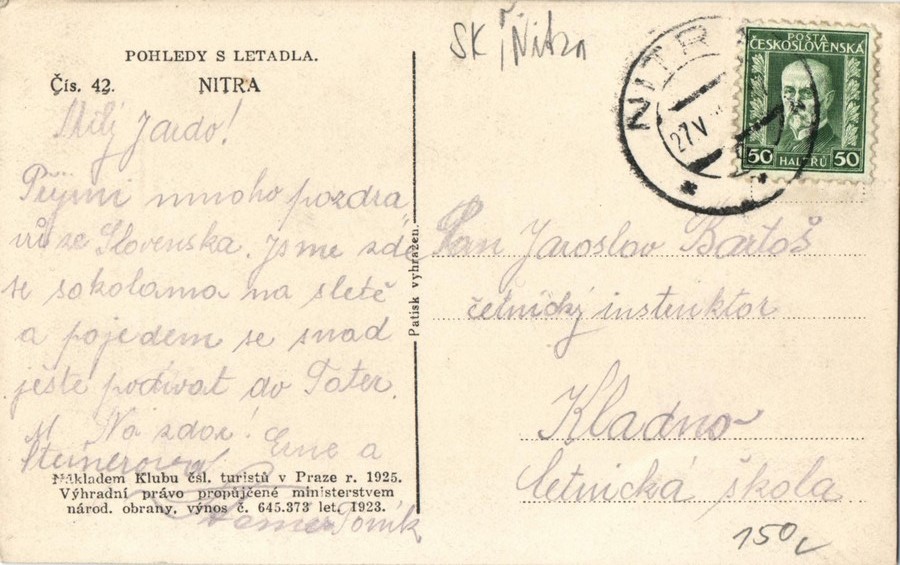 POHLEDY S LETADLA.
Čís. 42. NITRA
Milý Jardo!
Přijmi mnoho pozdra
vů ze Slovenska. Jsme zde
se sokolama na sletě
a pojedem se snad
ještě podívat do Tater.
Na zdar! Erne a
Steinerova
Nákladem Klubu čsl. turistů v Praze r. 1925.
Výhradní právo propůjčené ministerstvem
národ. obrany, výnos č. 645.373 let. 1923.
Toník
Patisk vyhražen.
SK, Nitra
NITR
27 V
POŠTA
ČESKOSLOVENSKÁ
50 HALÉŘŮ 50
Pan Jaroslav Bartoš
četnický instruktor
Kladno
četnická škola
150